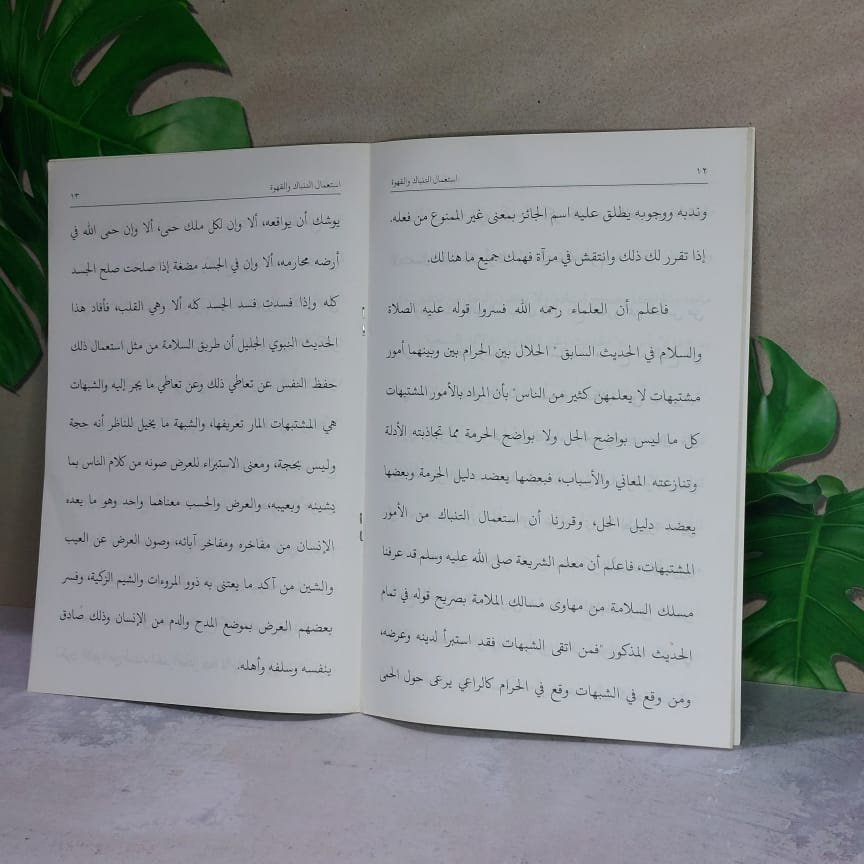 ١٢
استعمال التنباك والقهوة
وندبه ووجوبه يطلق عليه اسم الجائز بمعنى غير الممنوع من فعله.
إذا تقرر لك ذلك وانتقش في مرآة فهمك جميع ما هنا لك.
فاعلم أن العلماء رحمه الله فسروا قوله عليه الصلاة
والسلام في الحديث السابق "الحلال بين الحرام بين وبينهما أمور
مشتبهات لا يعلمهن كثير من الناس" بأن المراد بالأمور المشتبهات
كل ما ليس بواضح الحل ولا بواضح الحرمة مما تجاذبته الأدلة
وتنازعته المعاني والأسباب، فبعضها يعضد دليل الحرمة وبعضها
يعضد دليل الحل، وقررنا أن استعمال التنباك من الأمور
المشتبهات، فاعلم أن معلم الشريعة صلى الله عليه وسلم قد عرفنا
مسلك السلامة من مهاوى مسالك الملامة بصريح قوله في تمام
الحديث المذكور "فمن اتقى الشبهات فقد استبرأ لدينه وعرضه،
ومن وقع في الشبهات وقع في الحرام كالراعي يرعى حول الحمى
استعمال التنباك والقهوة
١٣
يوشك أن يواقعه، ألا وإن لكل ملك حمى، ألا وإن حمى الله في
أرضه محارمه، ألا وإن في الجسد مضغة إذا صلحت صلح الجسد
كله وإذا فسدت فسد الجسد كله ألا وهي القلب، فأفاد هذا
الحديث النبوي الجليل أن طريق السلامة من مثل استعمال ذلك
حفظ النفس عن تعاطي ذلك وعن تعاطي ما يجر إليه والشبهات
هي المشتبهات المار تعريفها، والشبهة ما يخيل للناظر أنه حجة
وليس بحجة، ومعنى الاستبراء للعرض صونه من كلام الناس بما
يشينه ويعيبه، والعرض والحسب معناهما واحد وهو ما يعده
الإنسان من مفاخره ومفاخر آبائه، وصون العرض عن العيب
والشين من آكد ما يعتنى به ذوو المروءات والشيم الزكية، وفسر
بعضهم العرض بموضع المدح والدم من الإنسان وذلك صادق
بنفسه وسلفه وأهله.